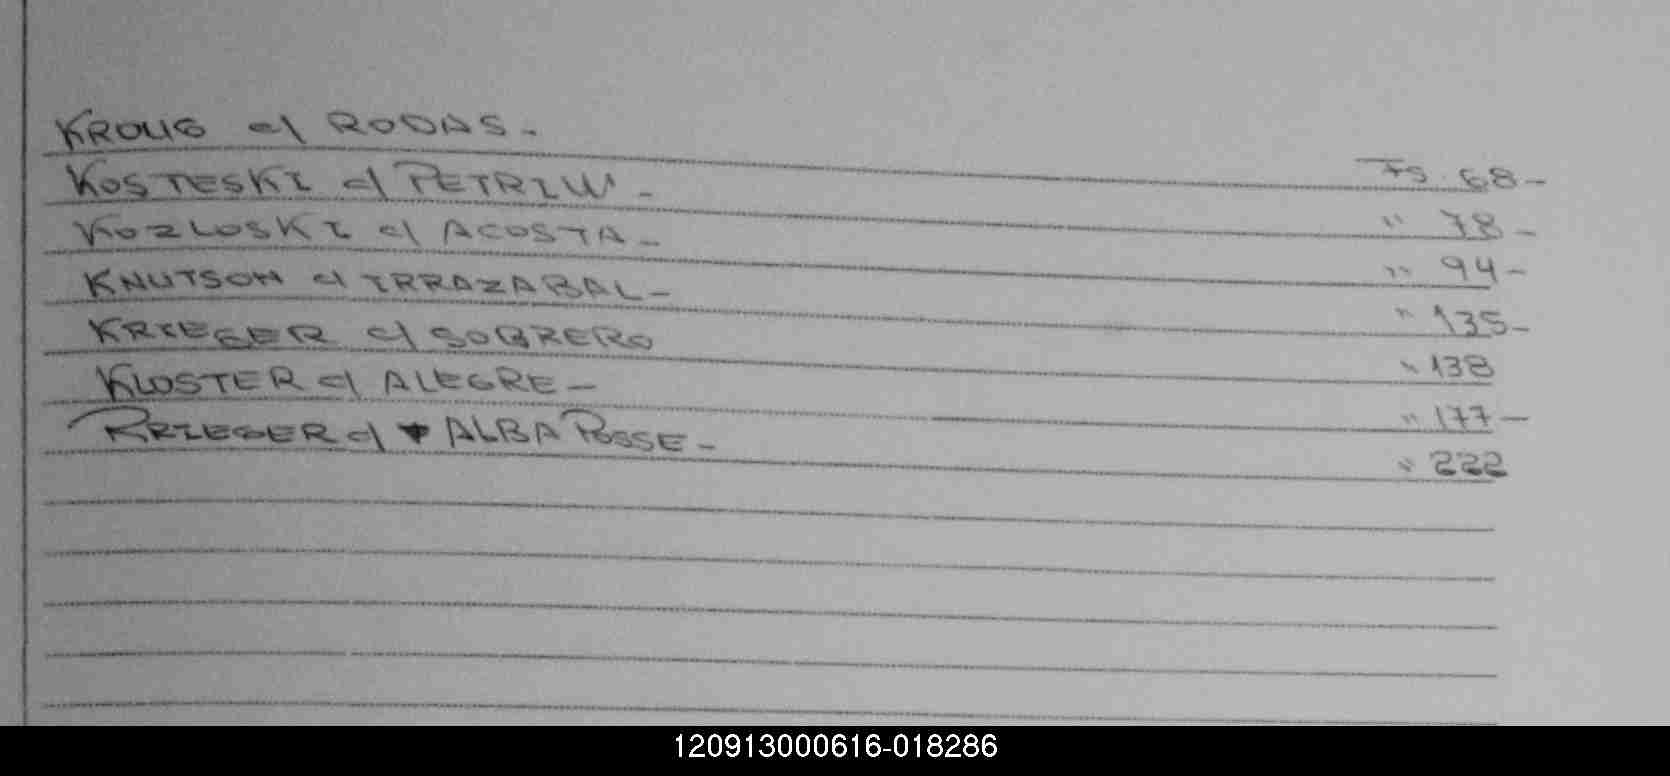 KROUG c/ RODAS. Fs. 68-
KOSTESKI c/ PETRIW - " 78-
KOZLOSKI c/ ACOSTA - " 94-
KNUTSON c/ IRRAZABAL - " 135-
KRIEGER c/ SOBRERO " 138
KLOSTER c/ ALEGRE - " 177-
KRIEGER c/ ALBA POSSE - " 222
120913000616-018286